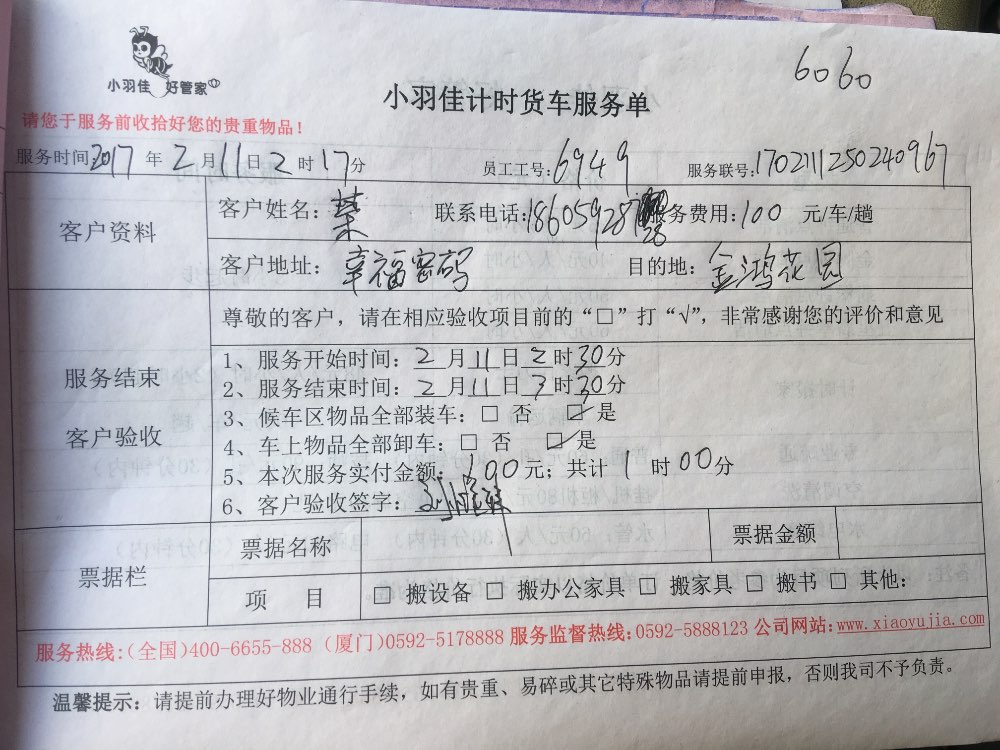 6060
小羽佳 好管家
小羽佳计时货车服务单
请您于服务前收拾好您的贵重物品!
服务时间:2017年2月11日2时17分 员工工号:6949 服务联号:170211250240967
客户资料
客户姓名: 联系电话:186059287 服务费用:100 元/车/趟
客户地址:幸福密码 目的地:金鸿花园
尊敬的客户,请在相应验收项目前的“□”打“√”,非常感谢您的评价和意见
服务结束
客户验收
1、服务开始时间:2月11日2时30分
2、服务结束时间:2月11日3时30分
3、候车区物品全部装车:□ 否 ☑是
4、车上物品全部卸车:□ 否 ☑是
5、本次服务实付金额:100元;共计1时00分
6、客户验收签字:
票据栏
票据名称 票据金额
项 目 □ 搬设备 □ 搬办公家具 □ 搬家具 □ 搬书 □ 其他:
服务热线:(全国)400-6655-888 (厦门)0592-5178888 服务监督热线:0592-5888123 公司网站:www.xiaoyujia.com
温馨提示:请提前办理好物业通行手续,如有贵重、易碎或其它特殊物品请提前申报,否则我司不予负责。